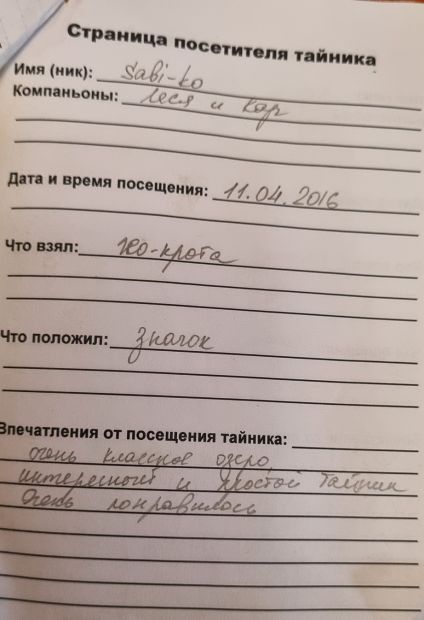 Страница посетителя тайника
Имя (ник): Sabi-ko
Компаньоны: Леся и Кар
Дата и время посещения: 11.04.2016
Что взял: гео-крота
Что положил: значок
Впечатления от посещения тайника:
очень классное озеро,
интересный и простой тайник
Очень понравилось